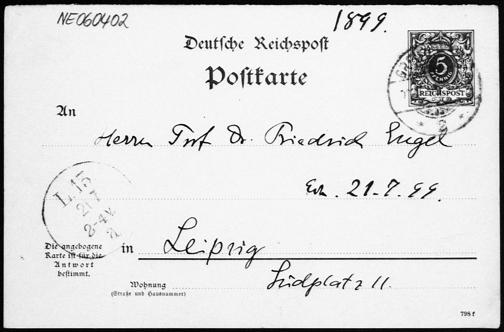 NE060402
1899.
Deutsche Reichspost
Postkarte
5
REICHSPOST
An
Herrn Prof Dr. Friedrich Engel
Erh. 21.7.99.
L. 13
21 7
2-4 N
in Leipzig
Die angebogene
Karte ist für die
Antwort
bestimmt.
Südplatz 11.
Wohnung
(Straße und Hausnummer)
798 f